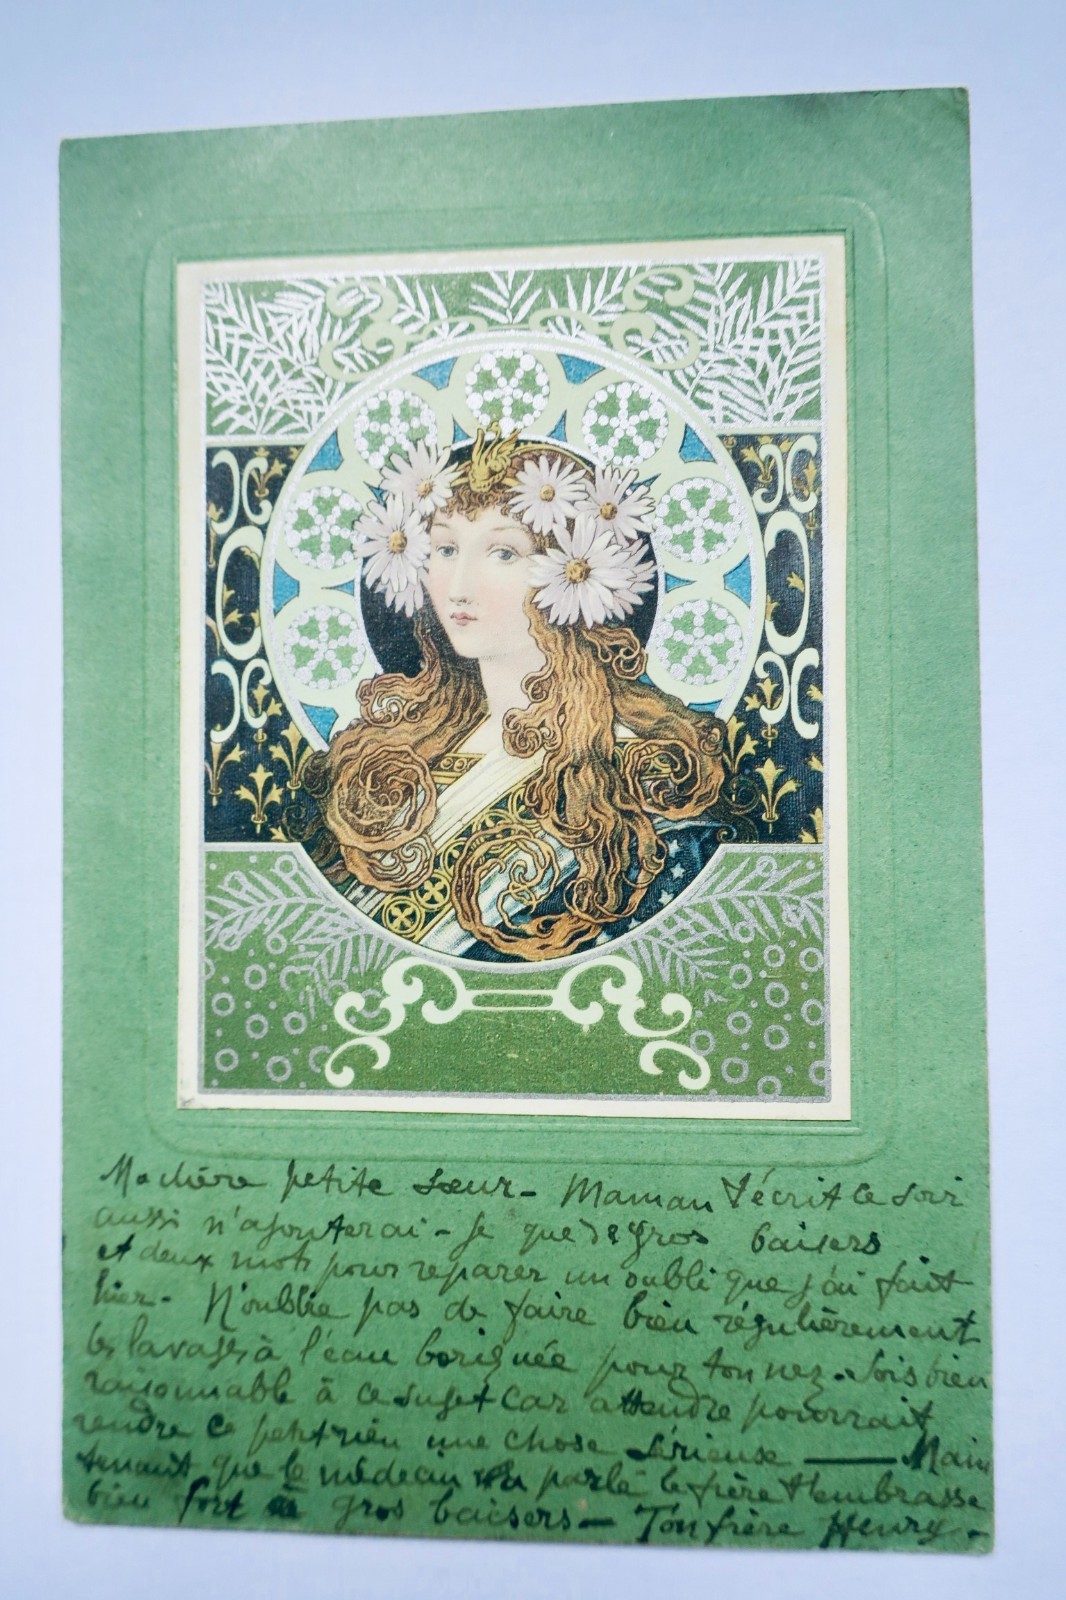 Ma chère petite sœur - Maman t'écrit ce soir
aussi n'ajouterai-je que de gros baisers
et deux mots pour reparer un oubli que j'ai fait
hier - N'oublie pas de faire bien régulièrement
les lavages à l'eau boriquée pour ton nez - Sois bien
raisonnable à ce sujet car attendre pourrait
rendre ce petit rien une chose sérieuse — Main
tenant que le médecin a parlé le frère t'embrasse
bien fort gros baisers - Ton frère Henry -